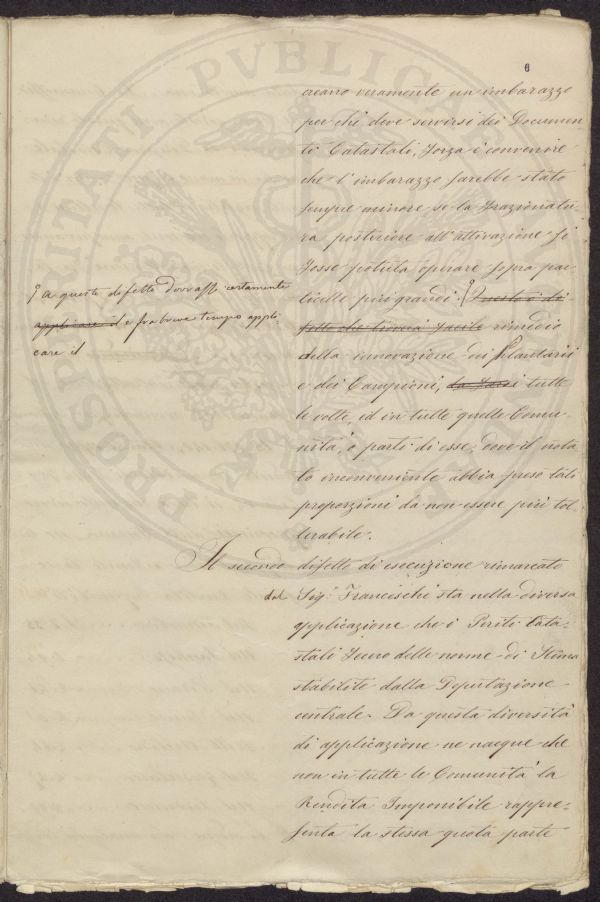 6
creano veramente un imbarazzo
per chi deve servirsi dei Documen-
ti Catastali, forza è convenire
che l'imbarazzo sarebbe stato
sempre minore se la frazionatu-
ra posteriore all'attivazione si
fosse potuta operare sopra par-
ticelle più grandi. Questo è di-
fetto che troverà facile rimedio
nella innovazione dei Plantarii
e dei Campioni, da farsi tutte
le volte, ed in tutte quelle Comu-
nità, o parti di esse, dove il nota
to inconveniente abbia preso tali
proporzioni da non essere più tol-
lerabile.
A questo difetto dovrassi certamente
applicare il e fra breve tempo appli-
care il
Il secondo difetto di esecuzione rimarcato
dal Sig. Franceschi sta nella diversa
applicazione che i Periti Cata-
stali fecero delle norme di Stima
stabilite dalla Deputazione
centrale. Da questa diversità
di applicazione ne nacque che
non in tutte le Comunità la
Rendita Imponibile rappre-
senta la stessa quota parte
PROSPERITATI PVBLICAE